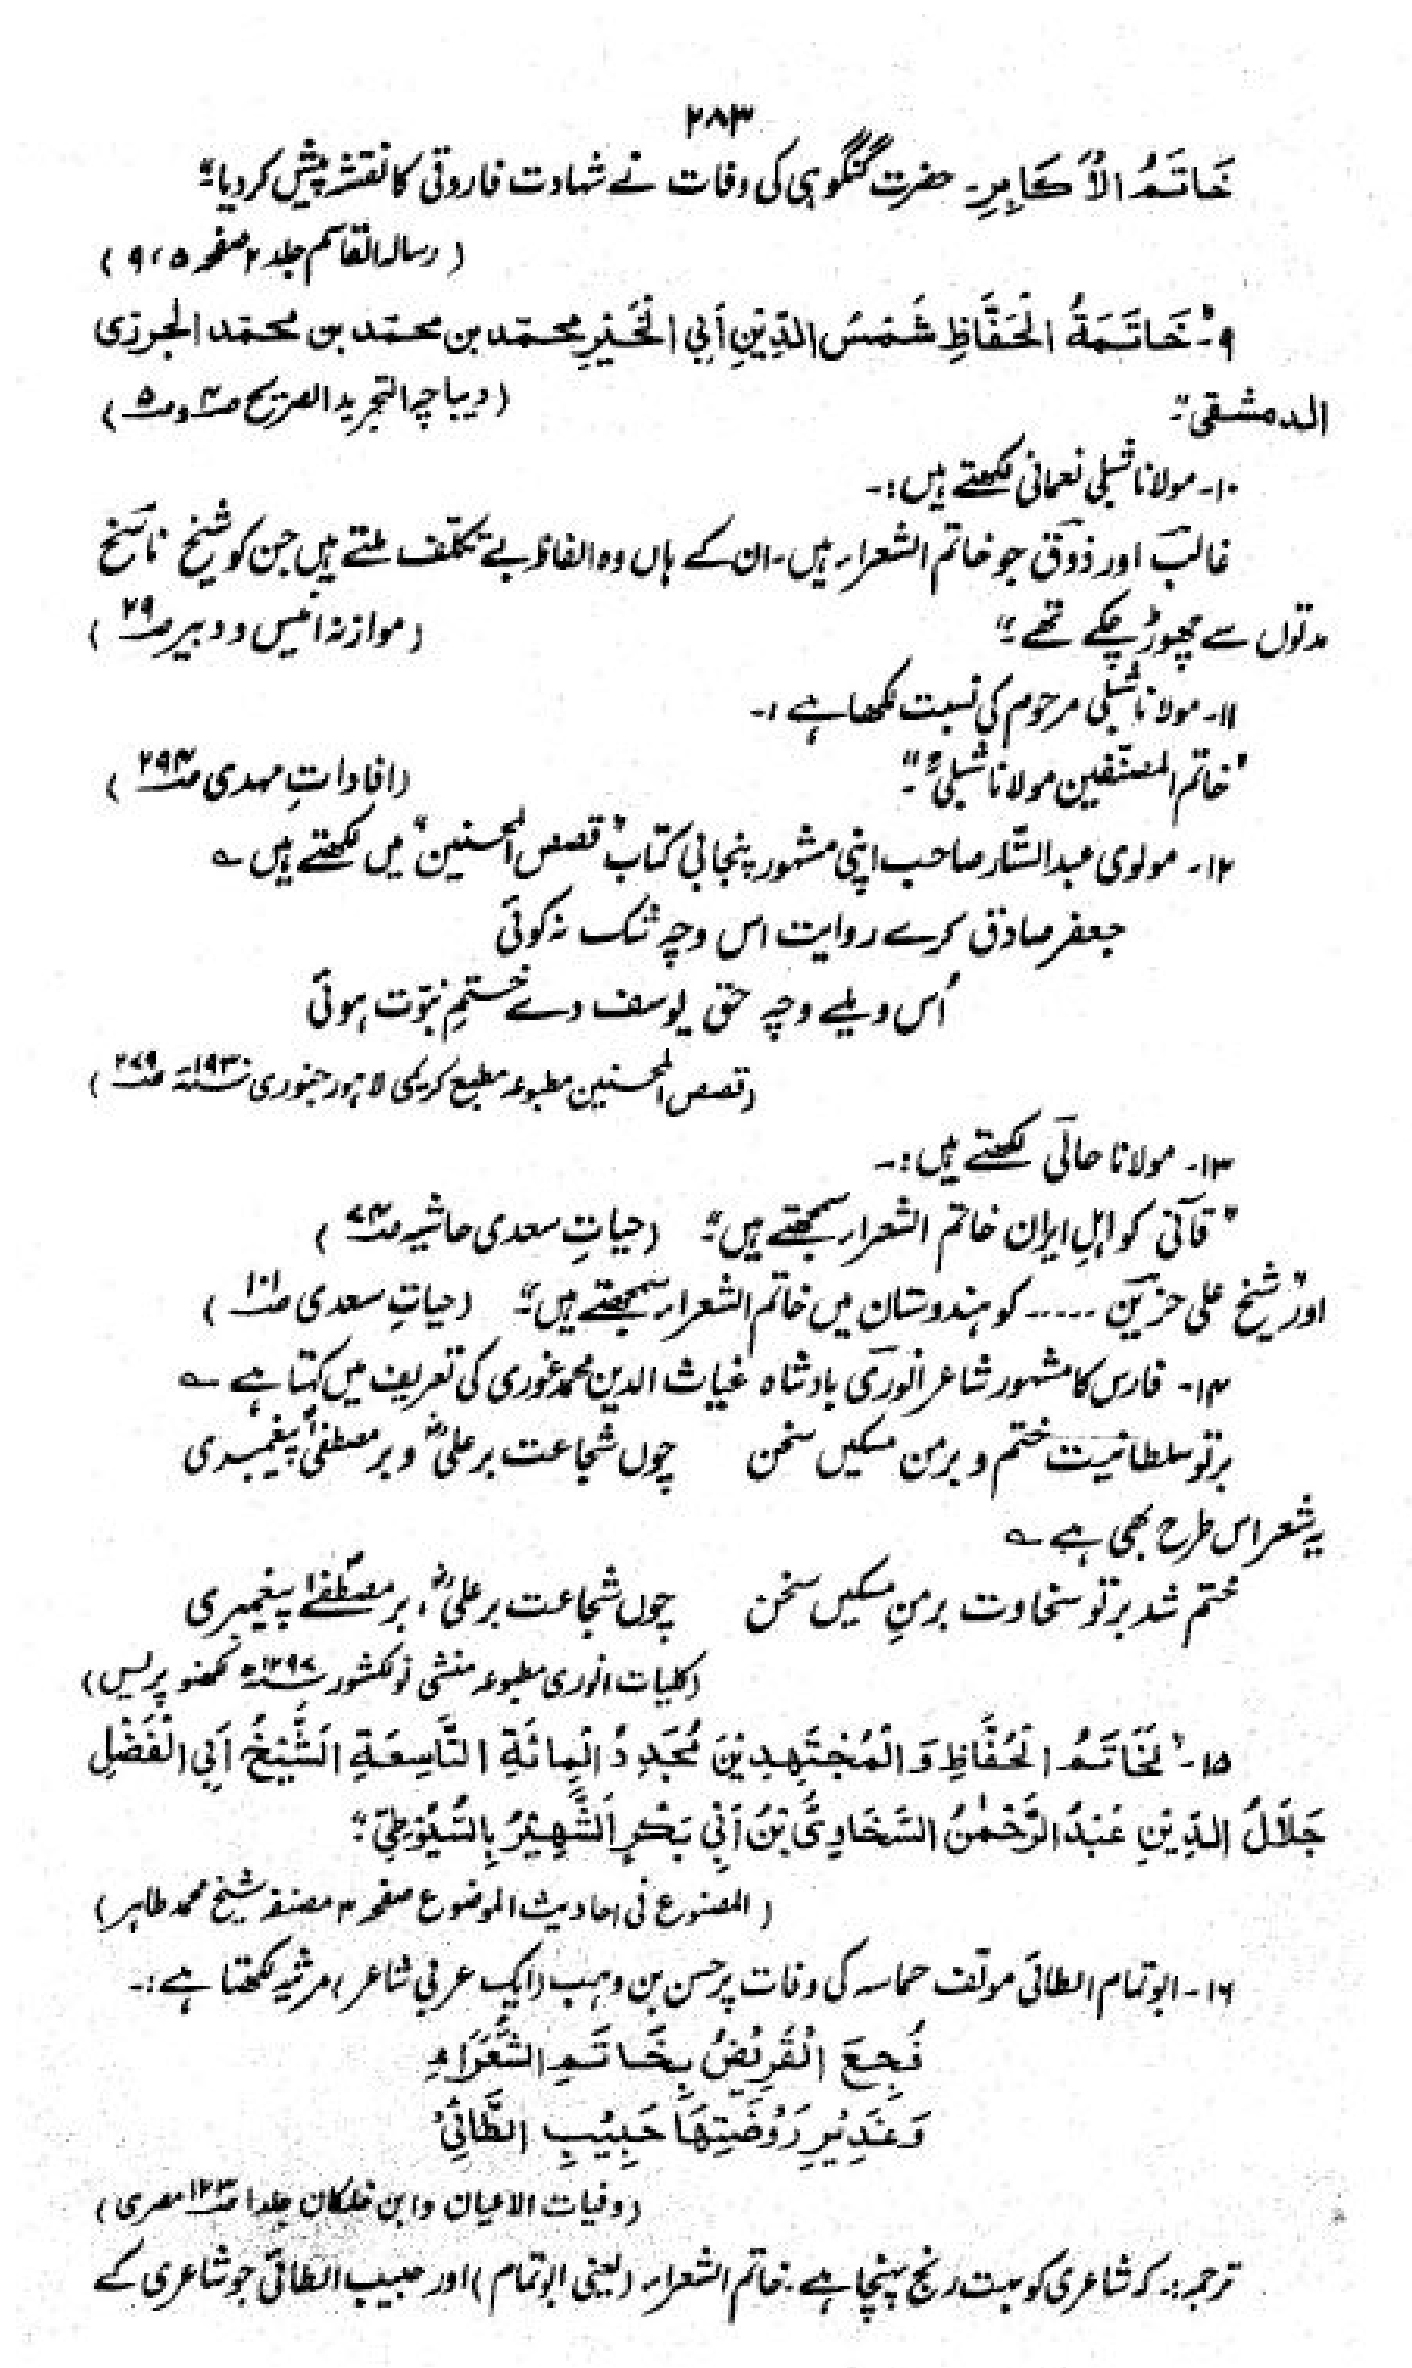 ۲۸۳
خَاتَمُ الْاَکَابِرِ۔ حضرت گنگوہی کی وفات نے شہادت فاروقی کا نقشہ پیش کر دیا۔"
(رسالہ القاسم جلد ۲ صفحہ ۵، ۹)
۹۔ "خَاتَمَةُ الْحُفَّاظِ شَمْسُ الدِّيْنِ اَبِي الْخَيْرِ محمّد بن محمّد بن محمّد الجزری
الدمشقی"۔
(دیباچہ التجرید الصریح صـ۴ و صـ۵)
۱۰۔ مولانا شبلی نعمانی لکھتے ہیں:۔
غالبؔ اور ذوقؔ جو خاتم الشعراء ہیں۔ ان کے ہاں وہ الفاظ بے تکلّف ملتے ہیں جن کو شیخ ناسخؔ
مدتوں سے چھوڑ چکے تھے۔"
(موازنہ انیس و دبیر صـ۲۹)
۱۱۔ مولانا شبلیؔ مرحوم کی نسبت لکھا ہے:۔
"خاتم المصنّفین مولانا شبلیؒ"۔
(افاداتِ مہدی صـ۲۹۳)
۱۲۔ مولوی عبدالستّار صاحب اپنی مشہور پنجابی کتاب "قصص المحسنین" میں لکھتے ہیں ؎
جعفر صادق کرے روایت اس وچہ شک نہ کوئی
اُس ویلے وچہ حق یوسف دے ختمِ نبوّت ہوئی
(قصص المحسنین مطبوعہ مطبع کریمی لاہور جنوری ۱۹۳۰ء صـ۲۷۹)
۱۳۔ مولانا حالیؔ لکھتے ہیں:۔
"قاآنی کو اہلِ ایران خاتم الشعراء سمجھتے ہیں۔" (حیاتِ سعدی حاشیہ صـ۷۴)
اور "شیخ علی حزیںؔ ..... کو ہندوستان میں خاتم الشعراء سمجھتے ہیں۔" (حیاتِ سعدی صـ۱۰۱)
۱۴۔ فارس کا مشہور شاعر انوریؔ بادشاہ غیاث الدین محمد غوری کی تعریف میں کہتا ہے ؎
برتو سلطانیت ختم و برمن مسکیں سخن چوں شجاعت بر علیؓ و بر مصطفیٰؐ پیغمبری
یہ شعر اس طرح بھی ہے ؎
ختم شد برتو سخاوت برمنِ مسکیں سخن چوں شجاعت بر علیؓ، بر مصطفےٰؐ پیغمبری
(کلیات انوری مطبوعہ منشی نولکشور ۱۲۹۷ھ لکھنو پریس)
۱۵۔ "لِخَاتَمِ الْحُفَّاظِ وَالْمُجْتَهِدِيْنَ مُجَدِّدُ الْمِائَةِ التَّاسِعَةِ الشَّيْخُ اَبِي الْفَضْلِ
جَلَالُ الدِّيْنِ عَبْدُ الرَّحْمٰنُ السَّخَاوِيُّ بْنُ اَبِيْ بَكْرٍ اَلشَّهِيْرُ بِالسُّيُوْطِيِّ"۔
(المصنوع فی احادیث الموضوع صفحہ ۴ مصنفہ شیخ محمد طاہر)
۱۶۔ ابو تمام الطائی مولّف حماسہ کی وفات پر حسن بن وہب (ایک عربی شاعر) مرثیہ لکھتا ہے:۔
فُجِعَ الْقَرِيْضُ بِخَاتَمِ الشُّعَرَاءِ
وَغَدِيْرِ رَوْضَتِهَا حَبِيْبِ الطَّائِيْ
(وفیات الاعیان و ابن خلکان جلد ۱ صـ۱۲۳ مصری)
ترجمہ:۔ کہ شاعری کو بہت رنج پہنچا ہے۔ خاتم الشعراء (یعنی ابو تمام) اور حبیب الطائی جو شاعری کے